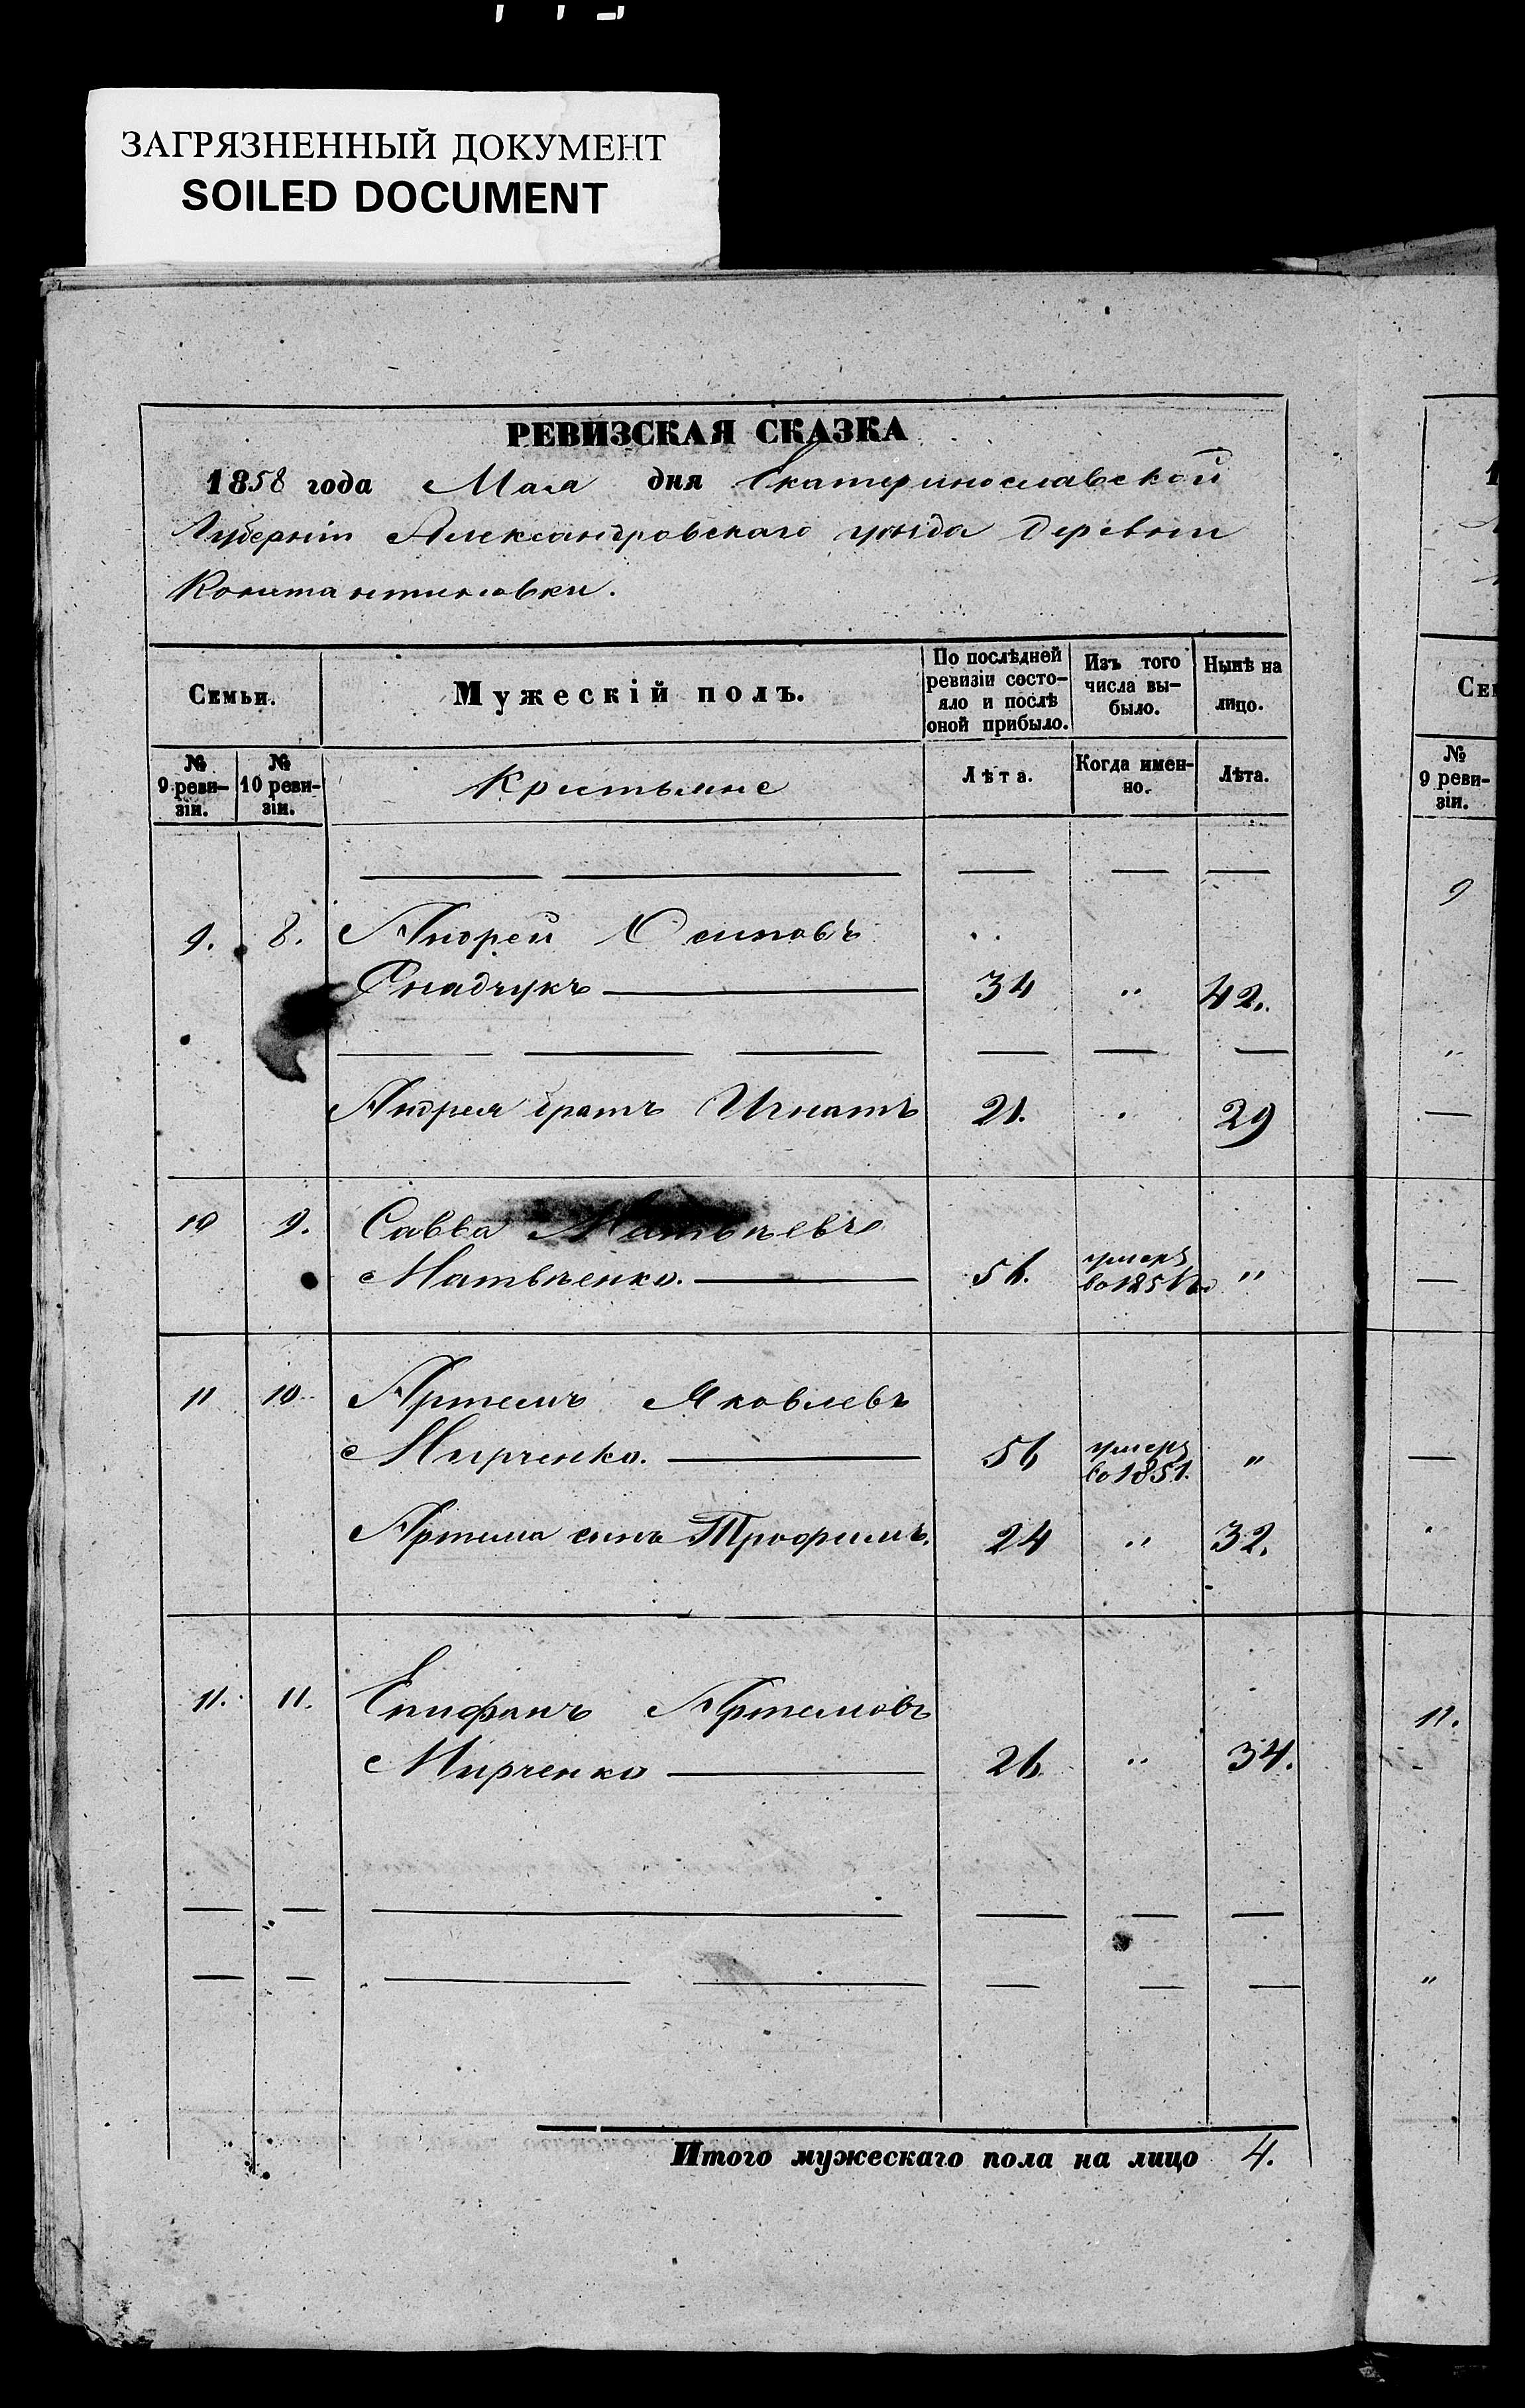 ЗАГРЯЗНЕННЫЙ ДОКУМЕНТ
SOILED DOCUMENT
РЕВИЗСКАЯ СКАЗКА
1858 года Мая дня Екатеринославской
Губерніи Александровскаго уѣзда деревни
Константиновки.
Семьи.
Мужескій полъ.
По послѣдней ревизіи состо-яло и послѣ оной прибыло.
Изъ того числа вы-было.
Нынѣ на лицо.
№ 9 реви-зіи.
№ 10 реви-зіи.
Крестьяне
Лѣта.
Когда имен-но.
Лѣта.
9. 8. Андрей Осиповъ
34 " 42.
Андрея братъ Игнатъ 21. " 29
10 9. Савва Матвѣевъ
Матвѣенко. 56. умеръ "
11 10 Артемъ Яковлевъ
Мирченко. 56 умеръ "
во 1851.
Артема сынъ Трофимъ. 24 " 32.
11. 11. Епифанъ Артемовъ
Мирченко 26 " 34.
Итого мужескаго пола на лицо 4.
№
9 реви-
зіи.
9
11.